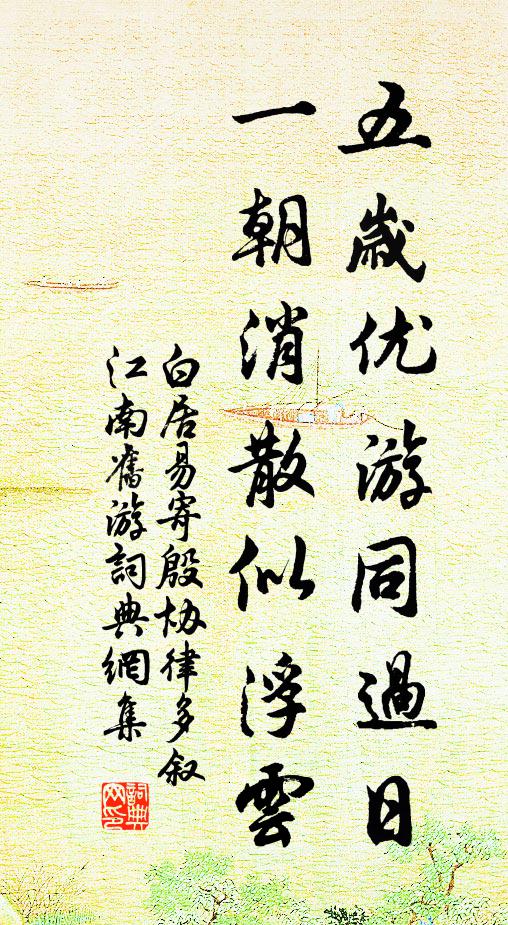 五歲优游同過日
一朝消散似浮雲
白居易寄殷协律多叙
江南舊游詞典網集
詞典
网印